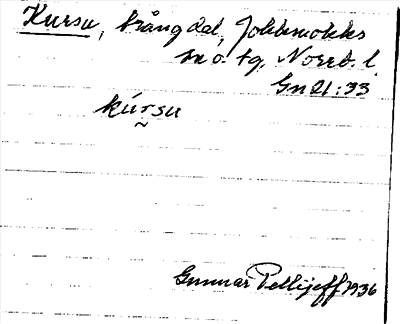 Kursu, trång dal, Jokkmokks
sn o. tg, Norrb. l.
Gn 21:33
kúrsu
Gunnar Pellijeff 1936